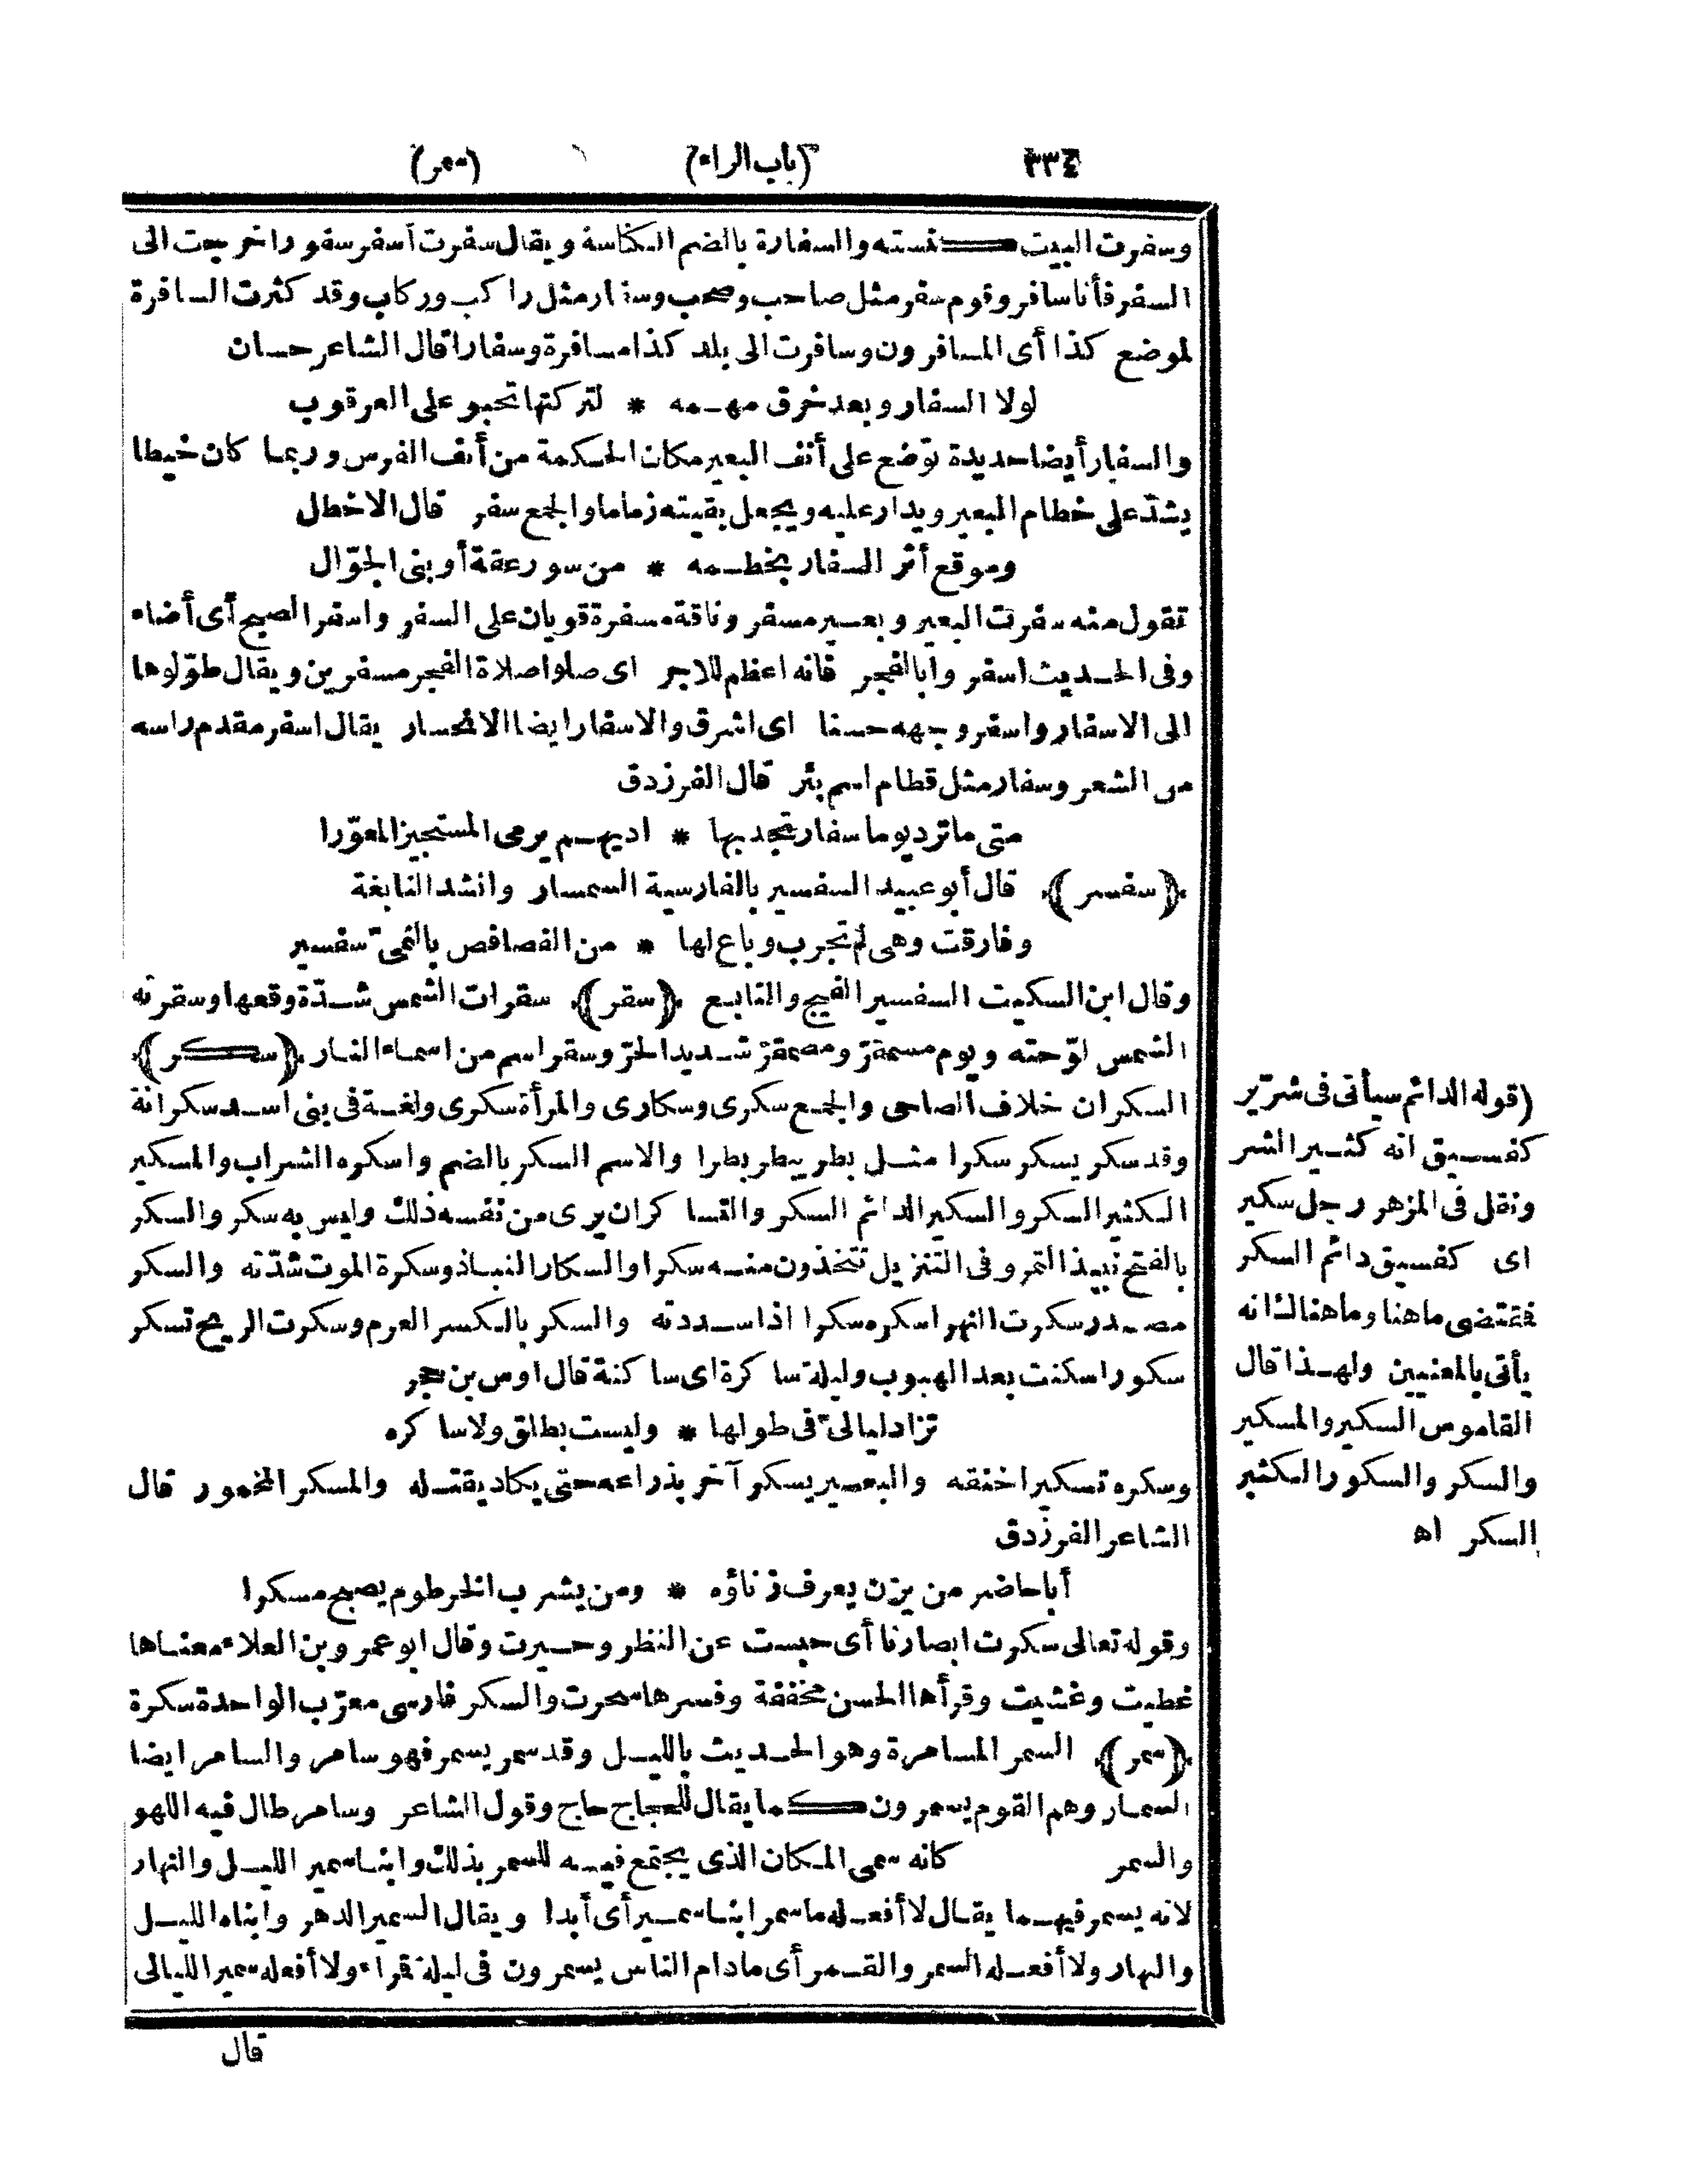 ٣٣٤
(باب الراء)
(سمر)
وسفرت البيت كنسته والسفارة بالضم الكناسة ويقال سفرت أسفر سفورا خرجت الى
السفر فأنا سافر وقوم سفر مثل صاحب وصحب وسفار مثل راكب وركاب وقد كثرت السافرة
لموضع كذا أى المسافرون وسافرت الى بلد كذا مسافرة وسفارا قال الشاعر حسان
لولا السفار وبعد خرق مهمه * لتركتها تحبو على العرقوب
والسفار أيضا حديدة توضع على أنف البعير مكان الحكمة من أنف الفرس وربما كان خيطا
يشدّ على خطام البعير ويدار عليه ويجعل بقيته زماما والجمع سفر قال الاخطل
وموقع أثر السفار بخطمه * من سور عقة أو بنى الجوّال
تقول منه سفرت البعير وبعير مسفر وناقة مسفرة قويان على السفر واسفر الصبح أى أضاء
وفى الحديث اسفر وابالفجر فانه اعظم للاجر اى صلوا صلاة الفجر مسفرين ويقال طوّلوها
الى الاسفار واسفر وجهه حسنا اى اشرق والاسفار ايضا الانحسار يقال اسفر مقدم راسه
من الشعر وسفار مثل قطام اسم بئر قال الفرزدق
متى ماترد يوما سفار تجد بها * اديهم يرمى المستجيز المعوّرا
﴿سفسر﴾ قال أبو عبيد السفسير بالفارسية السمسار وانشد النابغة
وفارقت وهى لم تجرب وباع لها * من الفصافص بالنمىّ سفسير
وقال ابن السكيت السفسير الفيج والتابع ﴿سقر﴾ سقرات الشمس شدّة وقعها وسقرته
الشمس لوّحته ويوم مسمقرّ ومصمقرّ شديد الحرّ وسقر اسم من اسماء النار ﴿سكر﴾
السكران خلاف الصاحى والجمع سكرى وسكارى والمرأة سكرى ولغة فى بنى اسد سكرانة
وقد سكر يسكر سكرا مثل بطر يبطر بطرا والاسم السكر بالضم واسكره الشراب والمسكير
الكثير السكر والسكير الدائم السكر والتساكران يرى من نفسه ذلك وليس به سكر والسكر
بالفتح نبيذ التمر وفى التنزيل تتخذون منه سكرا والسكار النباذ وسكرة الموت شدّته والسكر
مصدر سكرت النهر اسكره سكرا اذا سددته والسكر بالكسر العرم وسكرت الريح تسكر
سكورا سكنت بعد الهبوب وليلة ساكرة اى ساكنة قال اوس بن حجر
تزاد ليالىّ فى طولها * وليست بطلق ولا ساكره
وسكره تسكيرا خنقه والبعير يسكر آخر بذراعه حتى يكاد يقتله والمسكر المخمور قال
الشاعر الفرزدق
أبا حاضر من يزن يعرف زناؤه * ومن يشرب الخرطوم يصبح مسكرا
وقوله تعالى سكرت ابصارنا أى حبست عن النظر وحيرت وقال ابو عمرو بن العلاء معناها
غطيت وغشيت وقرأها الحسن مخففة وفسرها سحرت والسكر فارسى معرّب الواحدة سكرة
﴿سمر﴾ السمر المسامرة وهو الحديث بالليل وقد سمر يسمر فهو سامر والسامر ايضا
السمار وهم القوم يسمرون كما يقال للحجاج حاج وقول الشاعر وسامر طال فيه اللهو
والسمر كانه سمى المكان الذى يجتمع فيه للسمر بذلك وابنا سمير الليل والنهار
لانه يسمر فيهما يقال لا أفعله ما سمر ابنا سمير أى أبدا ويقال السمير الدهر وابناه الليل
والنهار ولا أفعله السمر والقمر أى مادام الناس يسمرون فى ليلة قمراء ولا أفعله سمير الليالى
قال
(قوله الدائم سيأتى فى شرّير
كفسيق انه كثير الشر
ونقل فى المزهر رجل سكير
اى كفسيق دائم السكر
فمقتضى ما هنا وما هنالك انه
يأتى بالمعنيين ولهذا قال
القاموس السكير والمسكير
والسكر والسكور الكثير
السكر اه